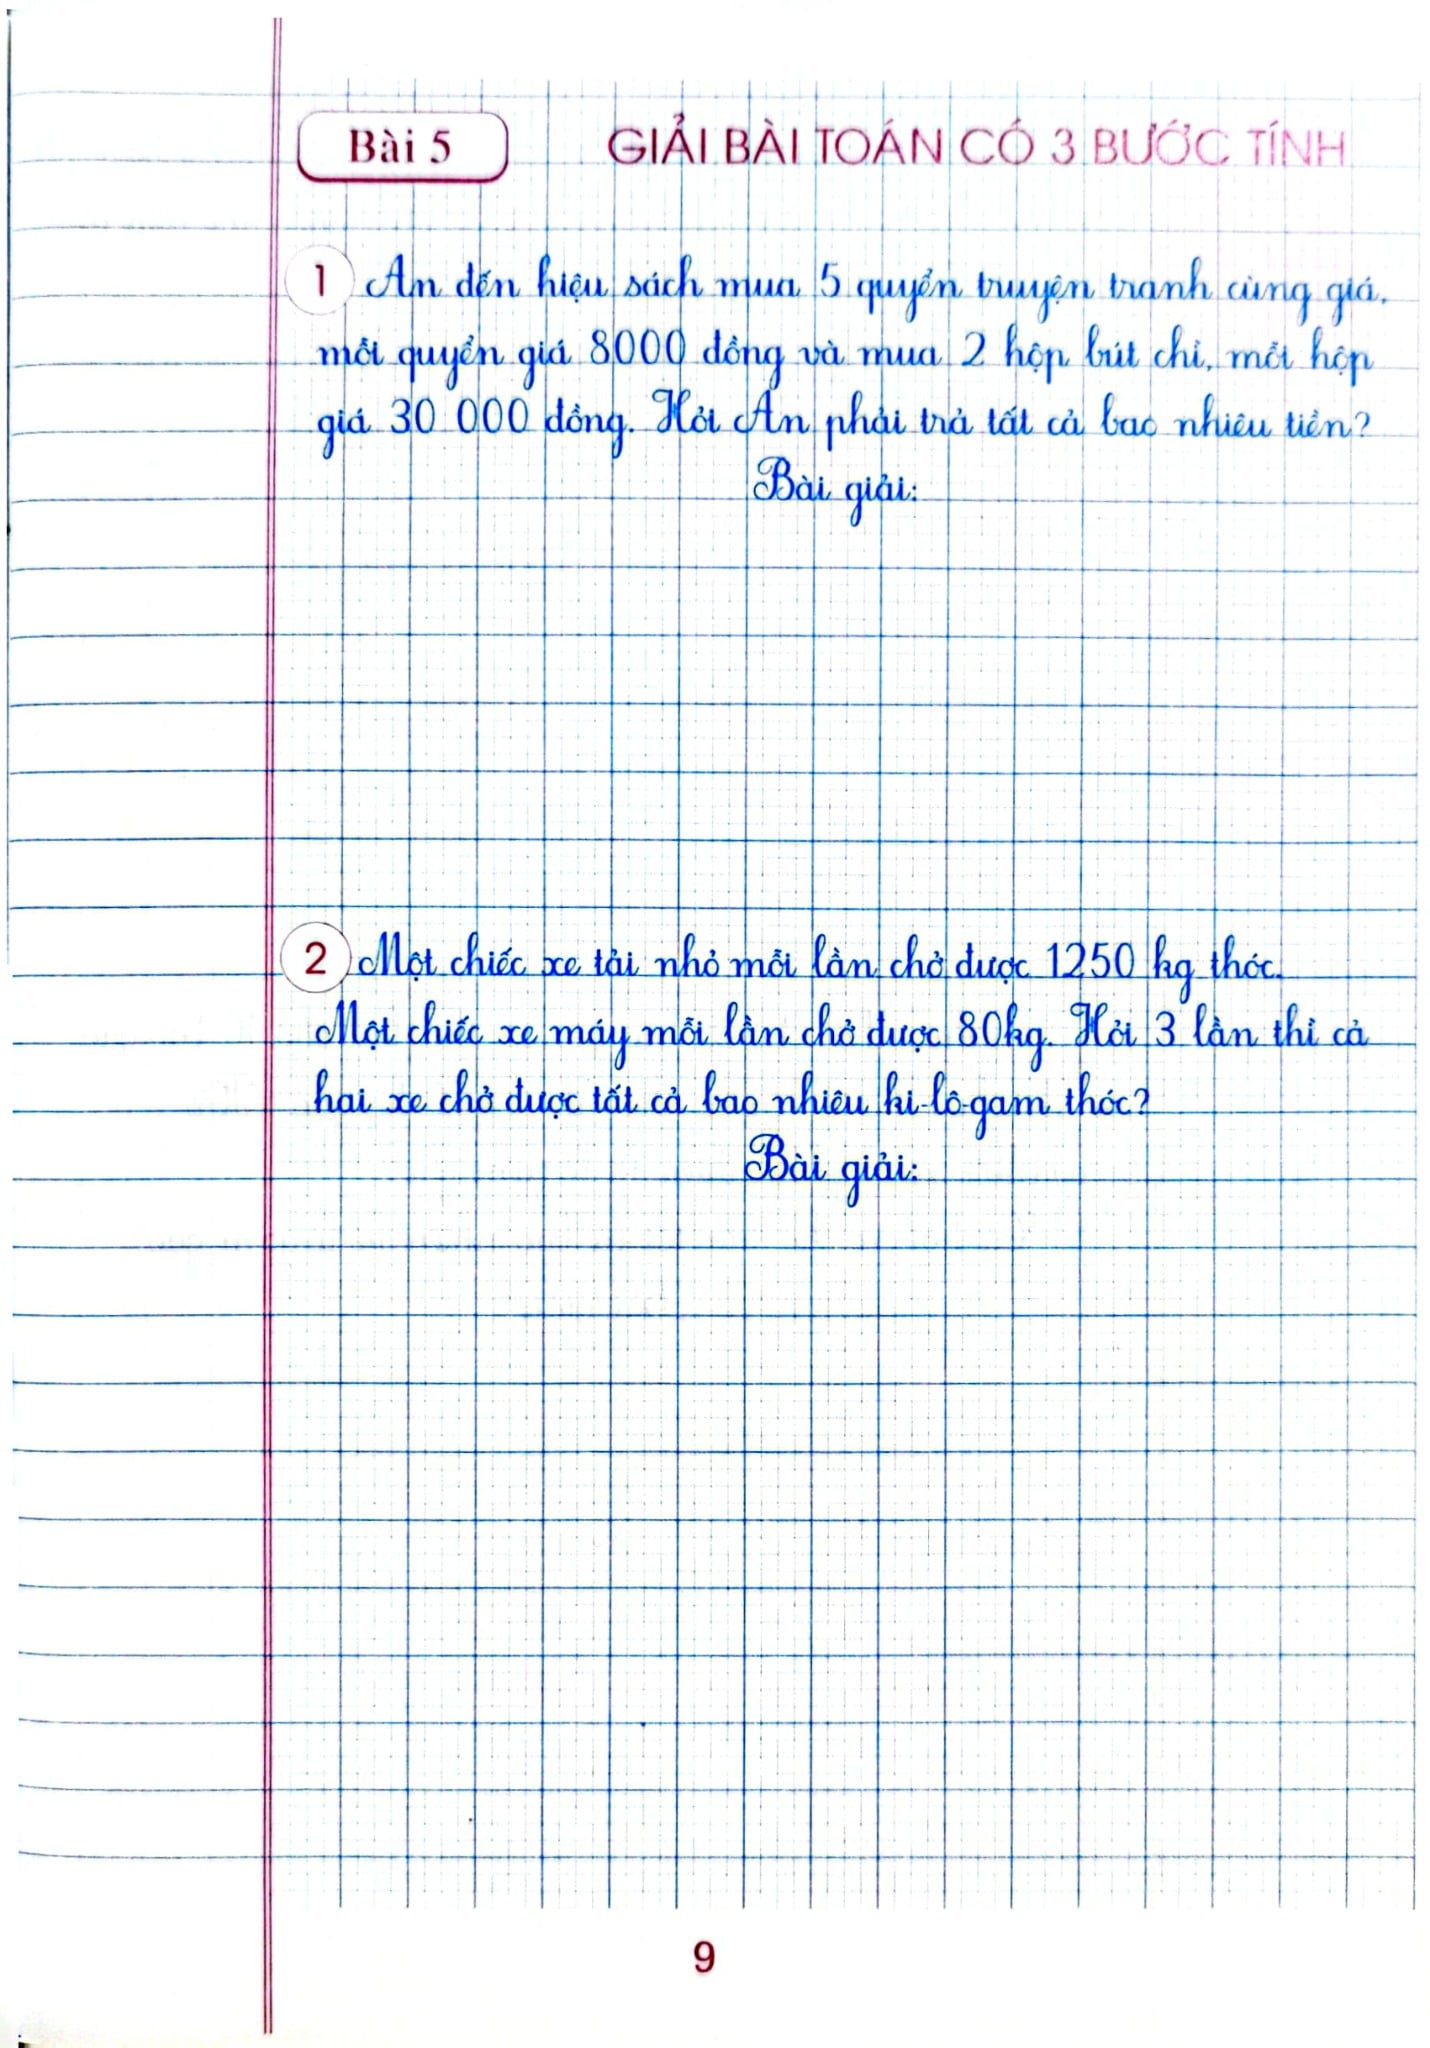 Bài 5 GIẢI BÀI TOÁN CÓ 3 BƯỚC TÍNH
1 An đến hiệu sách mua 5 quyển truyện tranh cùng giá,
mỗi quyển giá 8000 đồng và mua 2 hộp bút chì, mỗi hộp
giá 30 000 đồng. Hỏi An phải trả tất cả bao nhiêu tiền?
Bài giải:
2 Một chiếc xe tải nhỏ mỗi lần chở được 1250 kg thóc.
Một chiếc xe máy mỗi lần chở được 80kg. Hỏi 3 lần thì cả
hai xe chở được tất cả bao nhiêu ki-lô-gam thóc?
Bài giải:
9